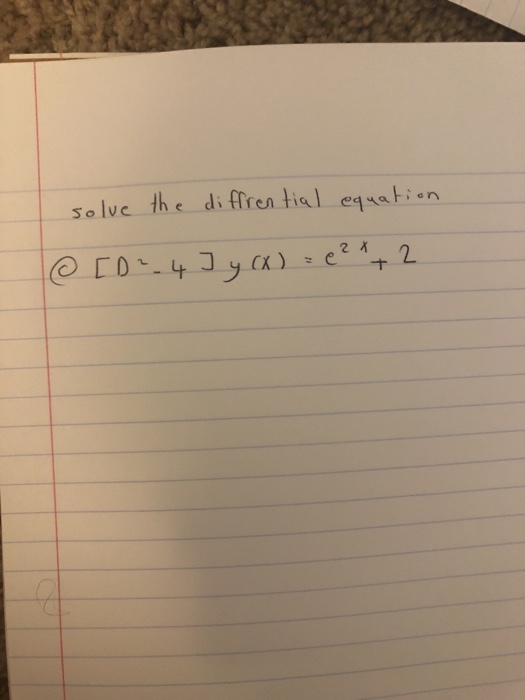 solve the diffrential equation
ⓒ [D²-4]y(x) = e²ˣ + 2